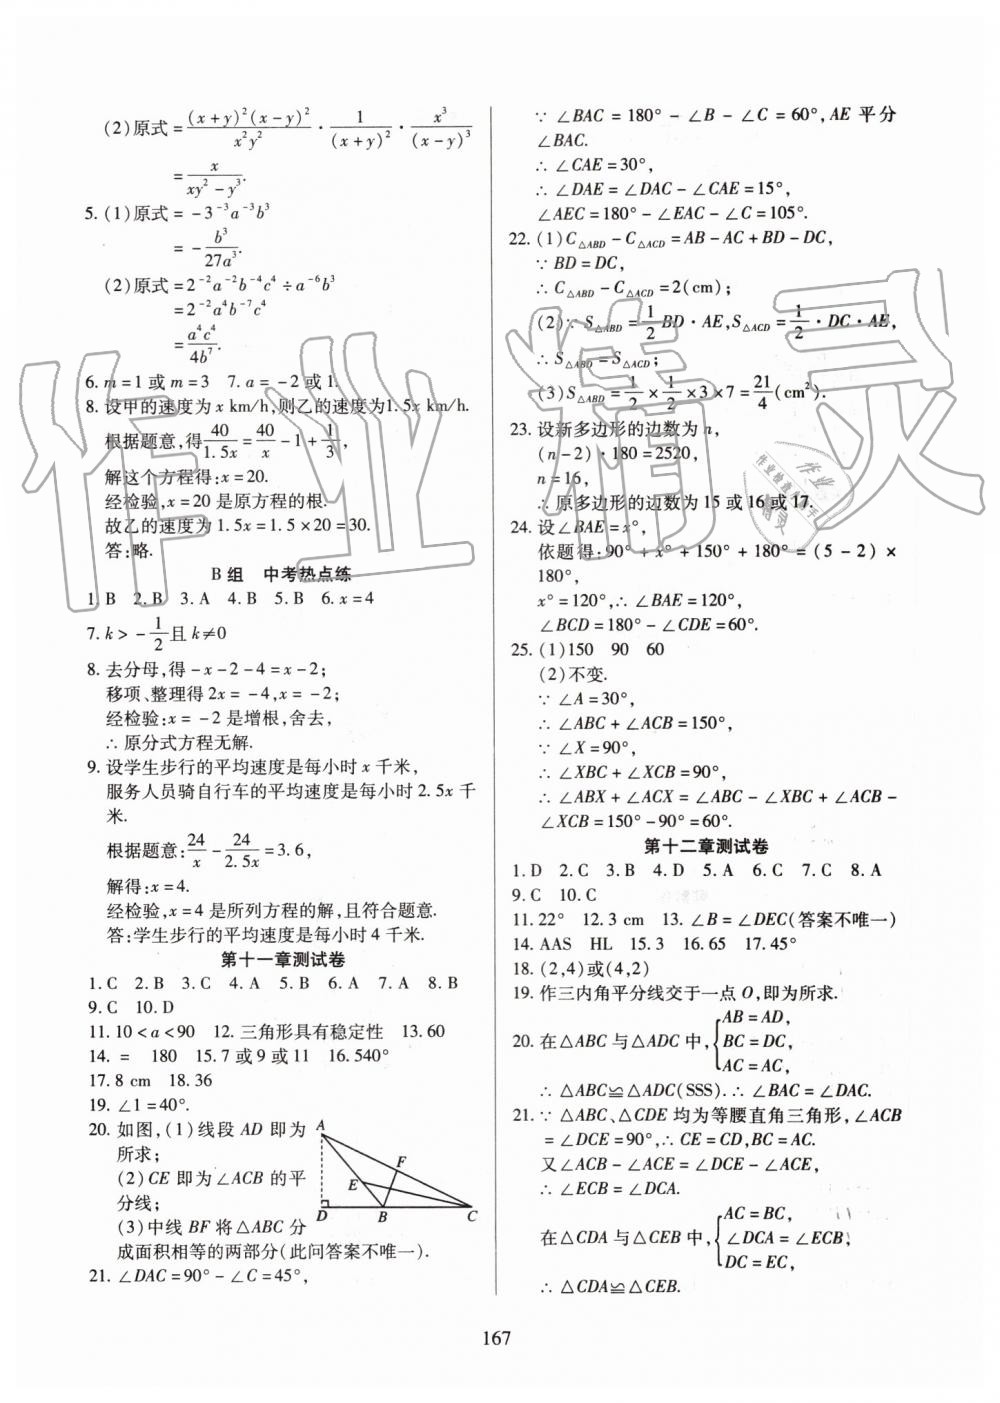 (2)原式=\frac{(x+y)^2(x-y)^2}{x^2y^2}·\frac{1}{(x+y)^2}·\frac{x^3}{(x-y)^3}
=\frac{x}{xy^2-y^3}.
5. (1)原式=-3^{-3}a^{-3}b^3
=-\frac{b^3}{27a^3}.
(2)原式=2^{-2}a^{-2}b^{-4}c^4÷a^{-6}b^3
=2^{-2}a^4b^{-7}c^4
=\frac{a^4c^4}{4b^7}.
6. m=1 或 m=3  7. a=-2 或 1.
8. 设甲的速度为 x km/h,则乙的速度为1.5x km/h.
根据题意,得\frac{40}{1.5x}=\frac{40}{x}-1+\frac{1}{3},
解这个方程得:x=20.
经检验,x=20 是原方程的根.
故乙的速度为 1.5x=1.5×20=30.
答:略.
B组  中考热点练
1. B  2. B  3. A  4. B  5. B  6. x=4
7. k>-\frac{1}{2}且 k≠0
8. 去分母,得-x-2-4=x-2;
移项、整理得 2x=-4,x=-2;
经检验:x=-2 是增根,舍去,
∴ 原分式方程无解.
9. 设学生步行的平均速度是每小时 x 千米,
服务人员骑自行车的平均速度是每小时 2.5x 千
米.
根据题意:\frac{24}{x}-\frac{24}{2.5x}=3.6,
解得:x=4.
经检验,x=4 是所列方程的解,且符合题意.
答:学生步行的平均速度是每小时 4 千米.
第十一章测试卷
1. C  2. B  3. C  4. A  5. B  6. A  7. A  8. B
9. C  10. D
11. 10<a<90  12. 三角形具有稳定性  13. 60
14. =  180  15. 7 或 9 或 11  16. 540°
17. 8 cm  18. 36
19. ∠1=40°.
20. 如图,(1)线段 AD 即为
所求;
(2)CE 即为∠ACB 的平
分线;
(3)中线 BF 将△ABC 分
成面积相等的两部分(此问答案不唯一).
A
F
E
D
B
C
21. ∠DAC=90°-∠C=45°,
∵ ∠BAC=180°-∠B-∠C=60°,AE 平分
∠BAC.
∴ ∠CAE=30°,
∴ ∠DAE=∠DAC-∠CAE=15°,
∠AEC=180°-∠EAC-∠C=105°.
22. (1)C_{△ABD}-C_{△ACD}=AB-AC+BD-DC,
∵ BD=DC,
∴ C_{△ABD}-C_{△ACD}=2(cm);
(2)∵ S_{△ABD}=\frac{1}{2}BD·AE,S_{△ACD}=\frac{1}{2}·DC·AE,
∴ S_{△ABD}=S_{△ACD};
(3)S_{△ABD}=\frac{1}{2}×\frac{1}{2}×3×7=\frac{21}{4}(cm²).
23. 设新多边形的边数为 n,
(n-2)·180=2520,
n=16,
∴ 原多边形的边数为 15 或 16 或 17.
24. 设∠BAE=x°,
依题得:90°+x°+150°+180°=(5-2)×
180°,
x°=120°,∴ ∠BAE=120°,
∠BCD=180°-∠CDE=60°.
25. (1)150  90  60
(2)不变.
∵ ∠A=30°,
∴ ∠ABC+∠ACB=150°,
∵ ∠X=90°,
∴ ∠XBC+∠XCB=90°,
∴ ∠ABX+∠ACX=∠ABC-∠XBC+∠ACB-
∠XCB=150°-90°=60°.
第十二章测试卷
1. D  2. C  3. B  4. D  5. A  6. C  7. C  8. A
9. C  10. C
11. 22°  12. 3 cm  13. ∠B=∠DEC(答案不唯一)
14. AAS  HL  15. 3  16. 65  17. 45°
18. (2,4)或(4,2)
19. 作三内角平分线交于一点 O,即为所求.
20. 在△ABC 与△ADC 中,{AB=AD,
BC=DC,
AC=AC,
∴ △ABC≌△ADC(SSS).∴ ∠BAC=∠DAC.
21. ∵ △ABC、△CDE 均为等腰直角三角形,∠ACB
=∠DCE=90°,∴ CE=CD,BC=AC.
又∠ACB-∠ACE=∠DCE-∠ACE,
∴ ∠ECB=∠DCA.
在△CDA 与△CEB 中,{AC=BC,
∠DCA=∠ECB,
DC=EC,
∴ △CDA≌△CEB.
167
作业精灵